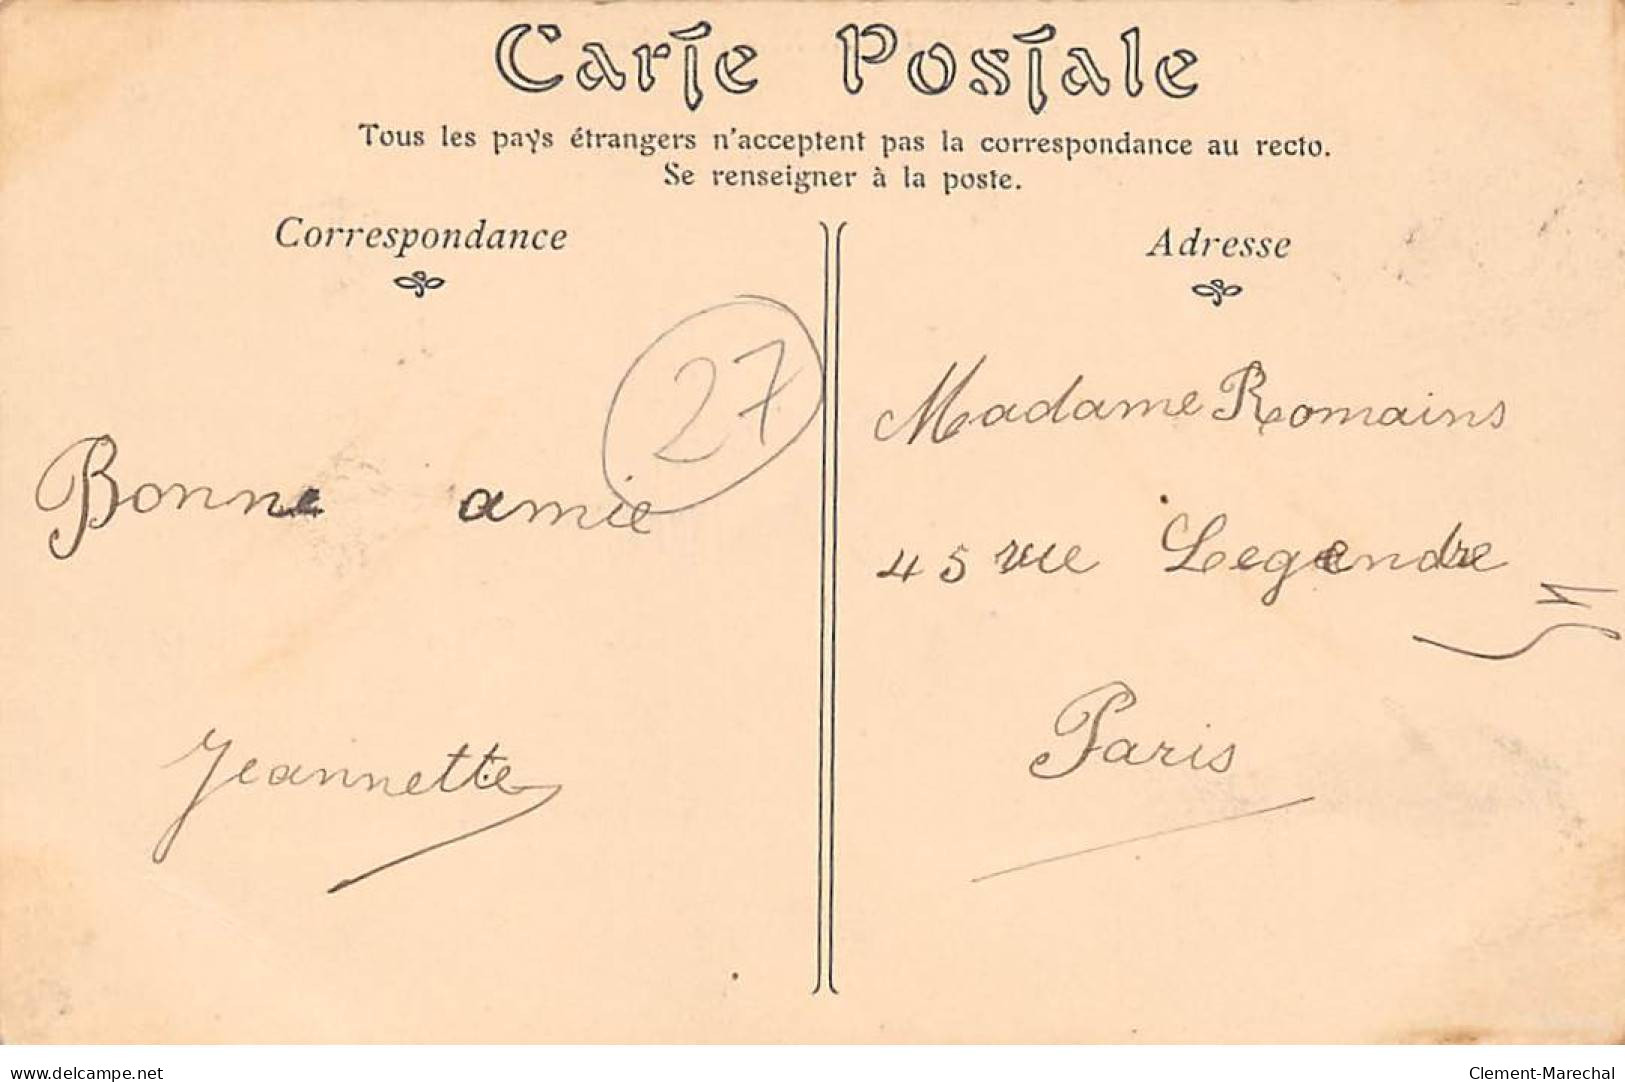 Carte Postale
Tous les pays étrangers n'acceptent pas la correspondance au recto.
Se renseigner à la poste.
Correspondance
Adresse
27
Bonne amie
Jeannette
Madame Romains
45 rue Legendre
Paris
delcampe.net
Clement-Marechal